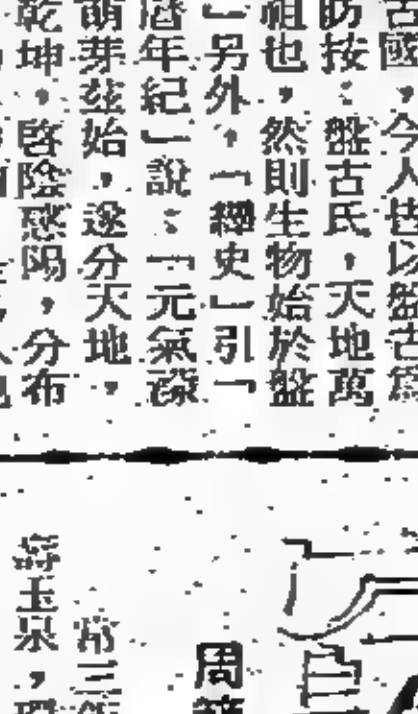 古國，今人皆以盤古爲
昉按：盤古氏，天地萬
祖也，然則生物始於盤
」另外，「繹史」引「
曆年紀」說：「元氣濛
萌芽茲始，遂分天地，
乾坤，啓陰感陽，分布
周
常三
壽玉泉，